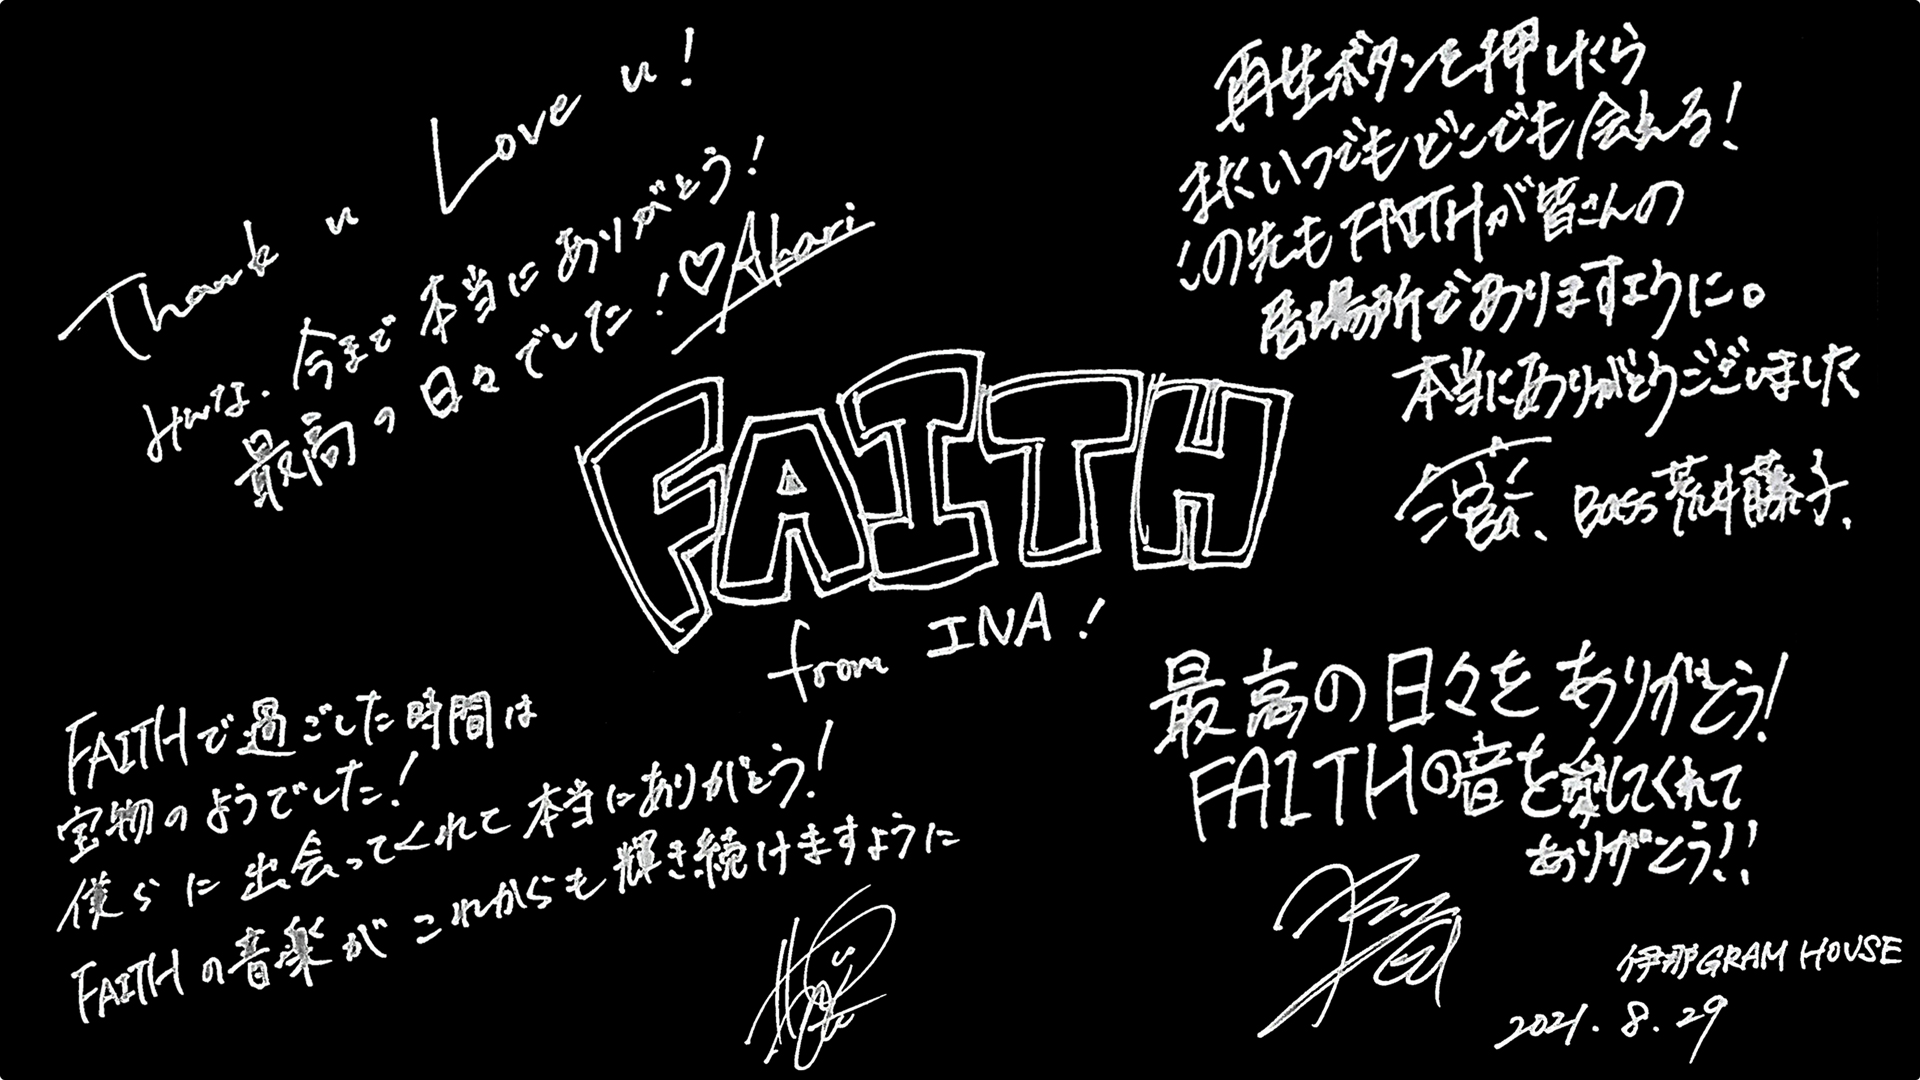 Thank u Love u!
みんな、今まで本当にありがとう!
最高の日々でした!♡Akari
再生ボタンを押したら
またいつでもどこでも会える!
この先もFAITHが皆さんの
居場所でありますように。
本当にありがとうございました
Bass 荒井藤子.
FAITH
from INA!
FAITHで過ごした時間は
宝物のようでした!
僕らに出会ってくれて本当にありがとう!
FAITHの音楽がこれからも輝き続けますように
最高の日々をありがとう!
FAITHの音を愛してくれて
ありがとう!!
伊那GRAM HOUSE
2021.8.29